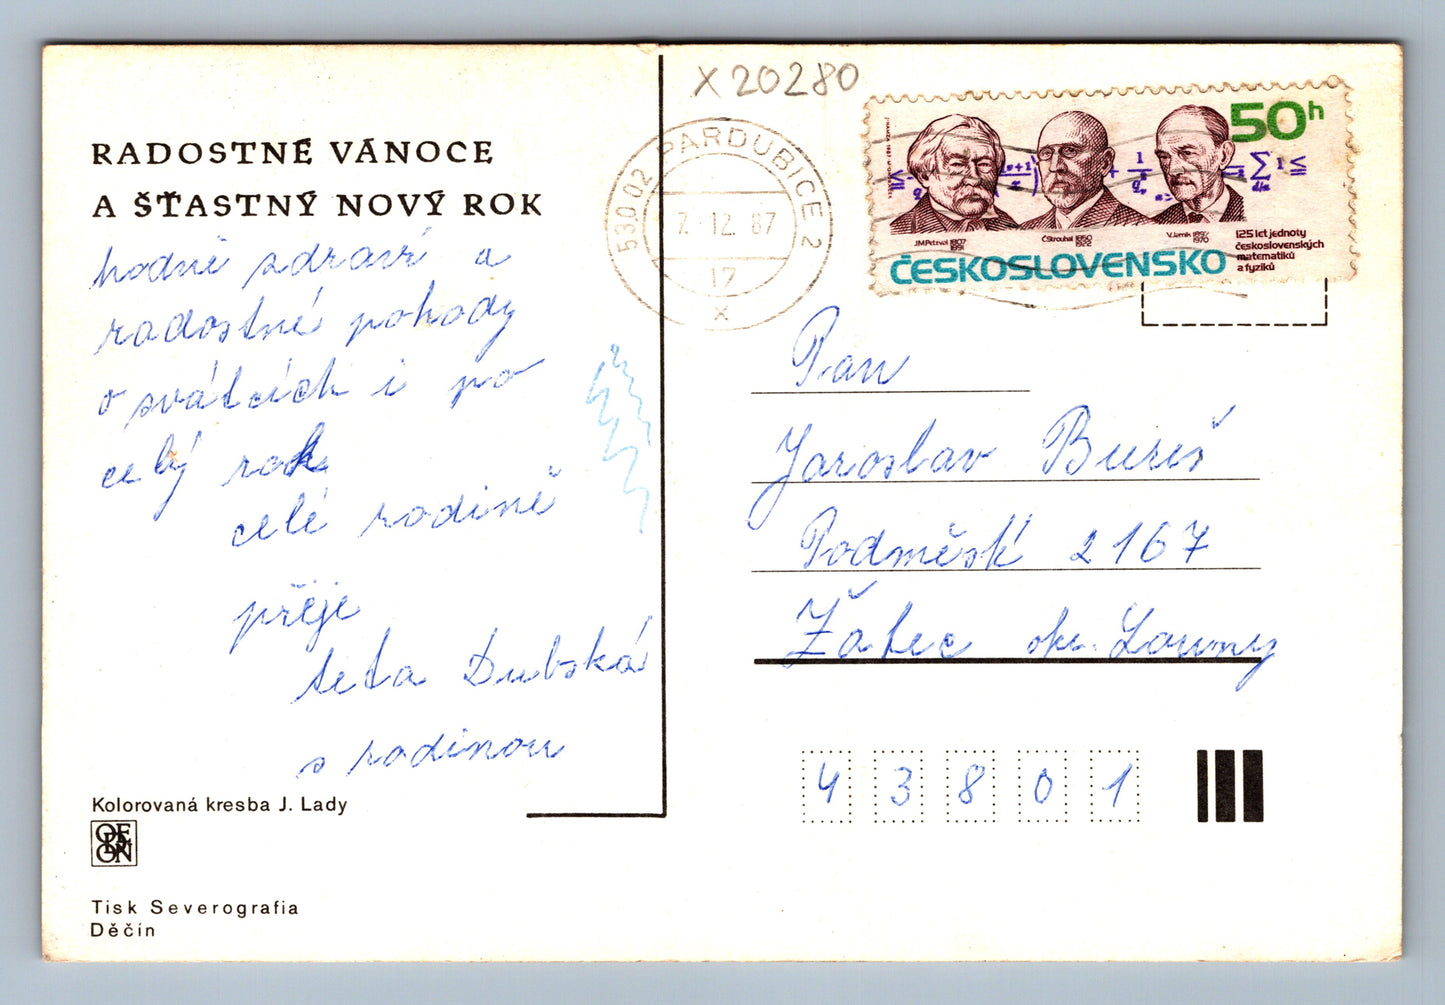 X 20280
RADOSTNÉ VÁNOCE
A ŠŤASTNÝ NOVÝ ROK
hodně zdraví a
radostné pohody
o svátcích i po
celý rok
celé rodině
přeje
teta Dubská
s rodinou
Kolorovaná kresba J. Lady
ORBON
Tisk Severografia
Děčín
530 02 PARDUBICE 2
7.12.87
17
x
50h
J.M.Petzval 1807 1891
Č.Strouhal 1850 1922
V.Jarník 1897 1970
125 let jednoty
československých
matematiků
a fyziků
ČESKOSLOVENSKO
Pan
Jaroslav Bureš
Podměsk 2167
Žatec okr. Louny
43801